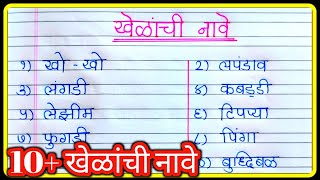 खेळांची नावे
१) खो - खो २) लपंडाव
३) लंगडी ४) कबड्डी
५) लेझीम ६) टिपऱ्या
७) फुगडी ८) पिंगा
बुध्दिबळ
10+ खेळांची नावे